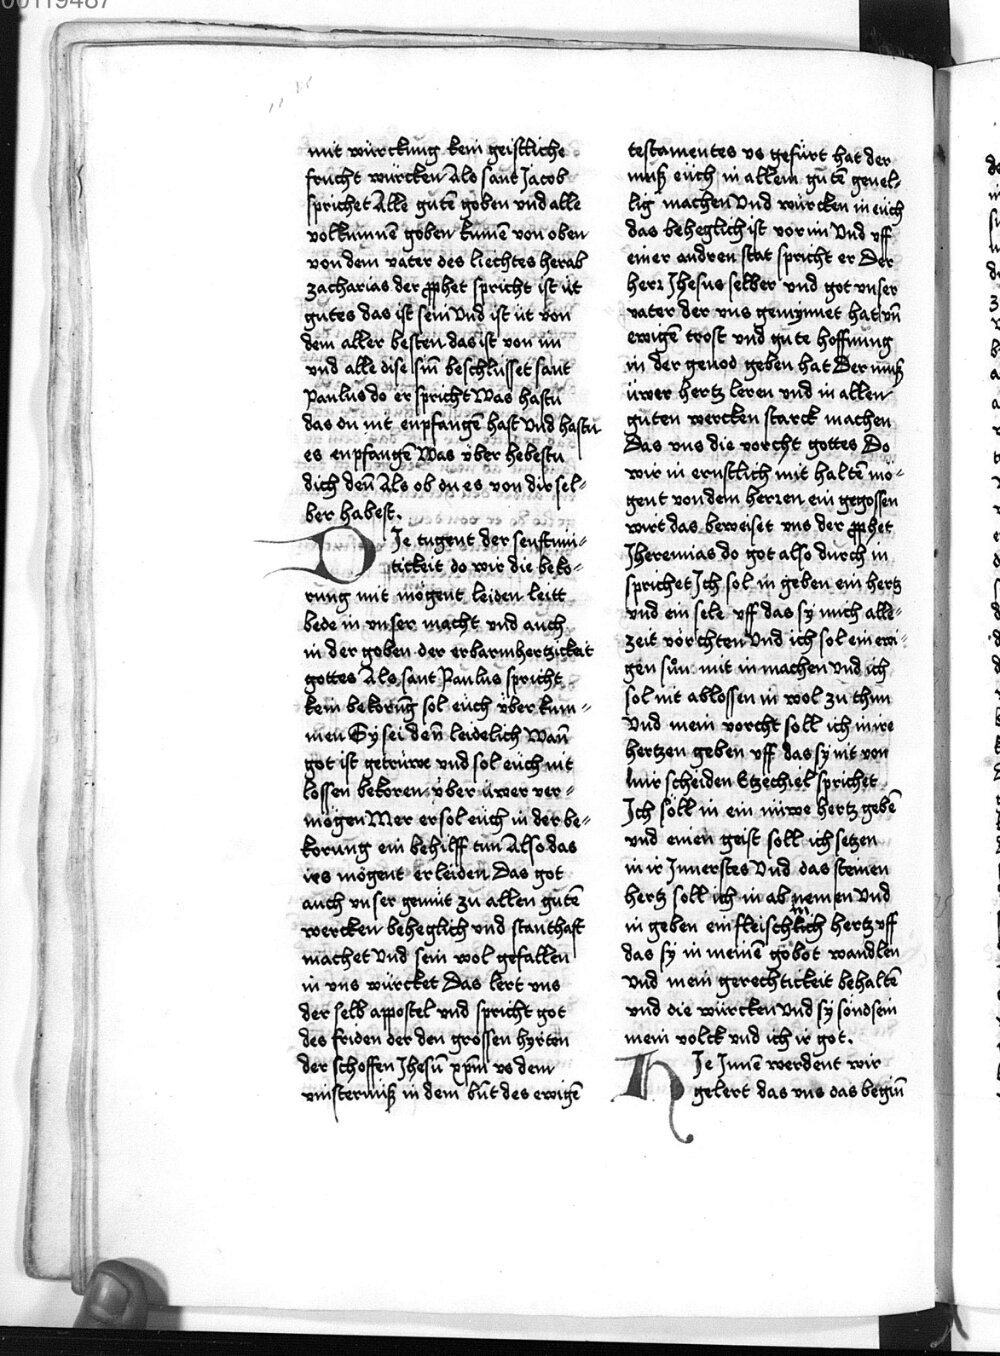 00119487
mit würckung kein geistliche
frucht würcken Als sant Jacob
sprichet Alle gutē goben vnd alle
volkumnē goben kumē von oben
von dem vater des liechtes herab
zacharias der ꝓphet spricht ist üt
gutes das ist sein Vnd ist üt von
dem aller besten das ist von im
vnd alle dise sin̄ beschlüsset sant
Paulus do er spricht Was hastu
das du nit enpfangē hast Vnd hastu
es enpfangē Was vͤber hebestu
dich den̄ Als ob du es von dir sel-
ber habest.
DJe tugent der senftmü-
tickeit do wir die beko-
rung mit mögent leiden leitt
bede in vnser macht vnd auch
in der goben der erbarmhertzickeit
gottes Als sant Paulus spricht
kein bekorūg sol euch vͤber kum-
men Sy sei den̄ leidelich Wan̄
got ist getrüwe vnd sol euch nit
lossen bekoren vͤber üwer ver-
mögen Mer er sol euch in der be-
korung ein behilff tun Also das
irs mögent erleiden Das got
auch vnser gemüt zu allen gutē
wercken beheglich vnd stanthaft
machet Vnd sein wol gefallen
in vns würcket Das lert vns
der selb appostel vnd spricht got
des friden der den grossen hyrten
der schoffen Jhesū xp̄m vs dem
vinsterniß in dem būt des ewigē
testamentes vs gefürt hat der
muß euch in allem gutē gevel-
lig machen Vnd würcken in euch
das beheglich ist vor im Vnd vff
einer andren stat spricht er Der
herr Jhesus selber vnd got vnser
vater der vns gemynnet hat vn̄
ewigē trost vnd gute hoffnung
in der genod geben hat Der muß
üwer hertz leren vnd in allen
guten wercken starck machen
Das vns die vorcht gottes Do
wir in ernstlich mit haltē mö-
gent von dem herren ein gegossen
wirt das beweiset vns der ꝓphet
Jheremias do got also durch in
sprichet Jch sol in geben ein hertz
vnd ein sele vff das sy mich alle-
zeit vörchten Vnd ich sol ein ewi-
gen sůn mit in machen Vnd ich
sol nit ablossen in wol zu thun
Vnd mein vorcht soll ich in ire
hertzen geben vff das sy nit von
mir scheiden Ezechiel sprichet
Jch soll in ein nüwe hertz gebē
vnd einen geist soll ich setzen
in ir Jnnerstes Vnd das steinen
hertz soll ich in ab nemen Vnd
in geben ein fleischlich hertz vff
das sy in meinen gobot wandlen
vnd mein gerechtickeit behaltē
vnd die würcken Vnd sy söndsein
mein volck vnd ich ir got.
HJe Jnnē werdent wir
gelert das vns das begin̄